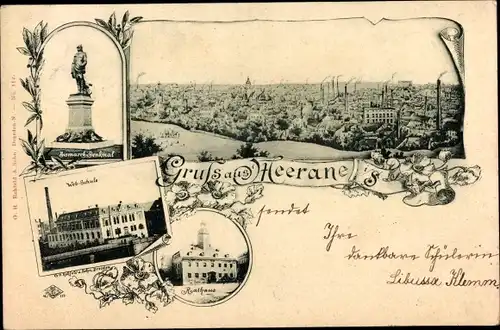 Bismarck-Denkmal
Web-Schule
Gruss aus Meerane i/S
Rathhaus
sendet
Ihre
dankbare Schülerin
Libussa Klemm